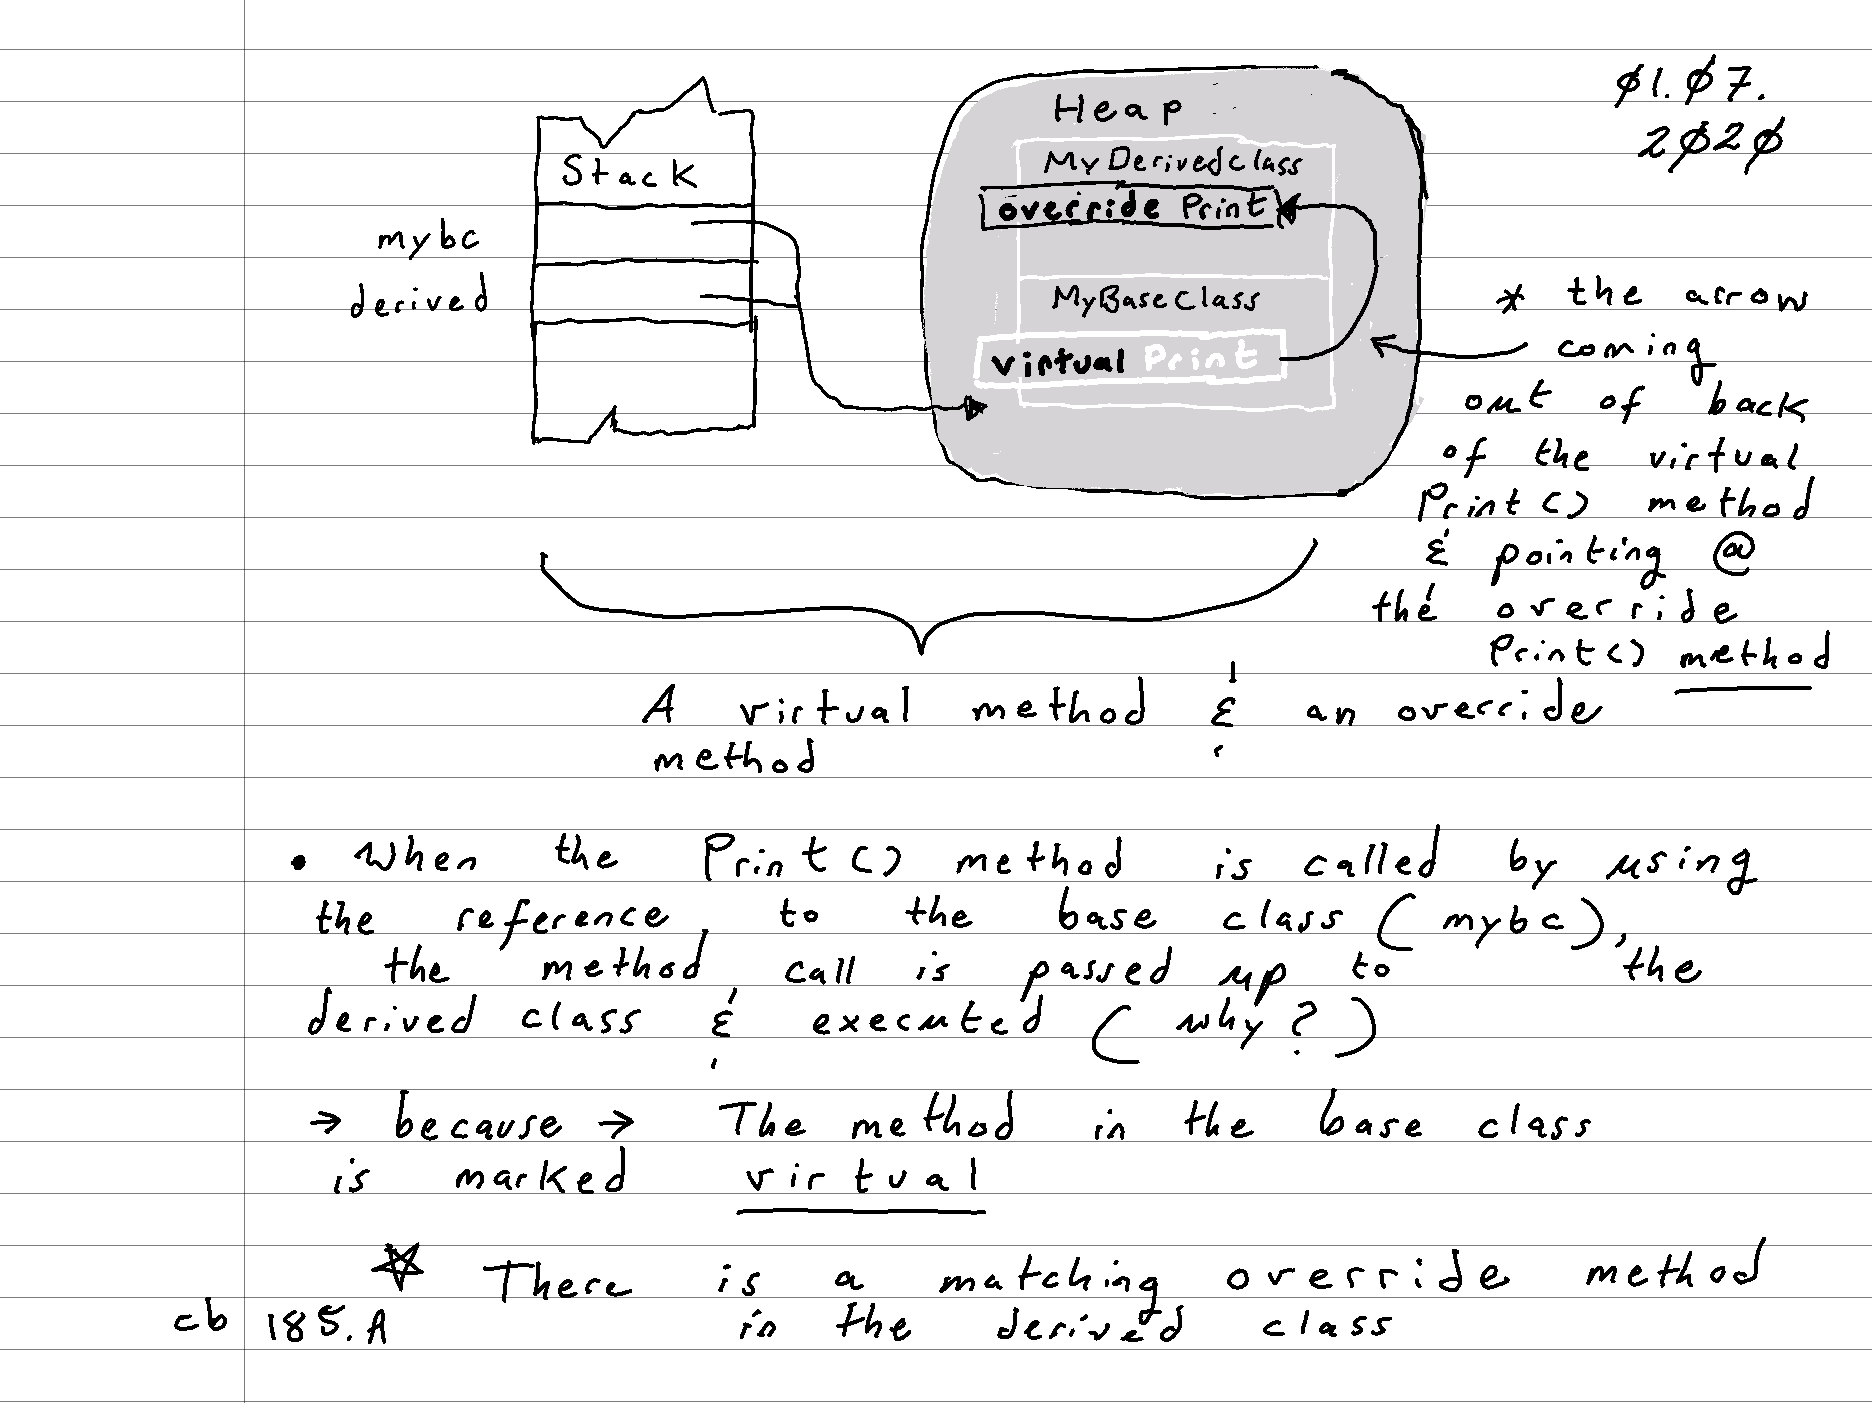 ø1.ø7.
2ø2ø
Heap
Stack
MyDerivedclass
override Print
mybc
derived
MyBaseClass
virtual Print
* the arrow
coming
out of back
of the virtual
Print() method
& pointing @
the override
Print() method
A virtual method & an override
method
• When the Print() method is called by using
the reference to the base class (mybc),
the method call is passed up to the
derived class & executed (why?)
→ because → The method in the base class
is marked virtual
☆ There is a matching override method
in the derived class
cb 185.A